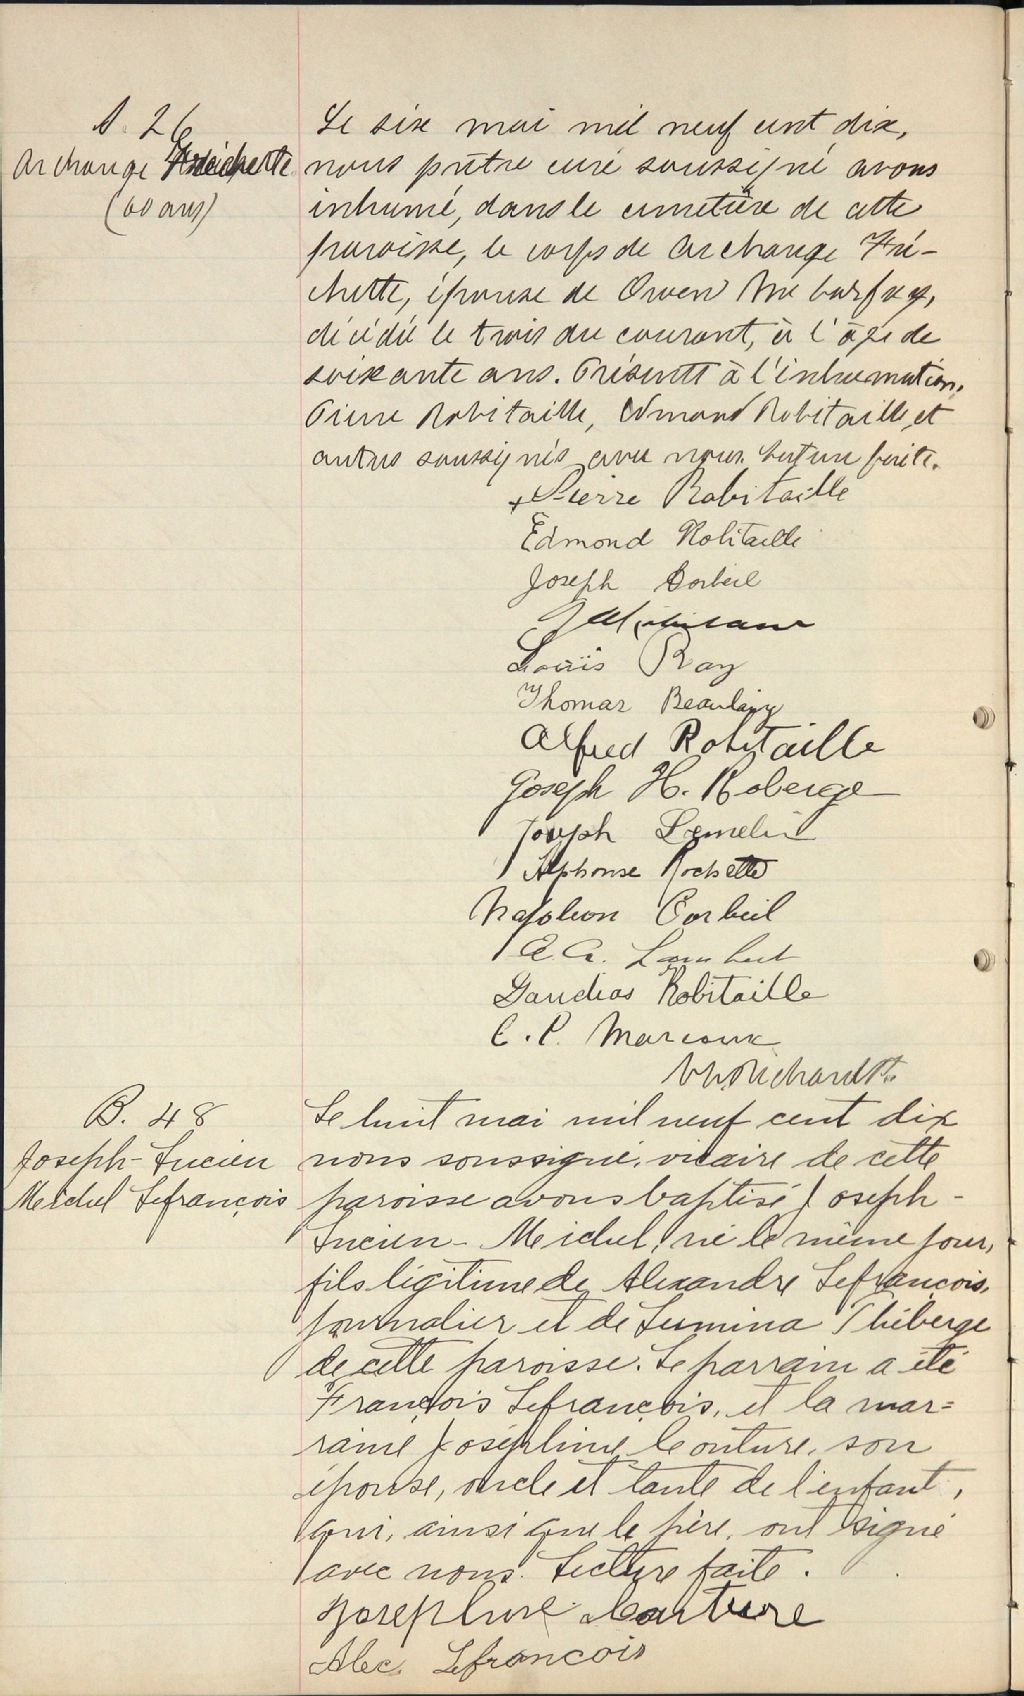 S. 26
Archange Fréchette
(60 ans)
Le six mai mil neuf cent dix,
nous prêtre curé soussigné avons
inhumé, dans le cimetière de cette
paroisse, le corps de Archange Fré-
chette, épouse de Owen
décédée le trois du courant, à l'âge de
soixante ans. Présents à l'inhumation,
Pierre Robitaille, Edmond Robitaille, et
autres soussignés avec nous. Lecture faite.
+ Pierre Robitaille
Edmond Robitaille
Joseph Corbeil
Louis Roy
Thomas
Alfred Robitaille
Joseph H. Roberge
Joseph Lemelin
Alphonse Rochette
Napoleon Corbeil
E. A. Lambert
Gaudias Robitaille
E. P. Marcoux
B. 48
Joseph-Lucien
Meichel Lefrançois
Le huit mai mil neuf cent dix
nous soussigné, vicaire de cette
paroisse avons baptisé Joseph-
Lucien-Meichel, né le même jour,
fils légitime de Alexandre Lefrançois,
journalier et de Lumina Théberge
de cette paroisse. Le parrain a été
François Lefrançois, et la mar=
raine Joséphine Couture, son
épouse, oncle et tante de l'enfant,
qui, ainsi que le père, ont signé
avec nous. Lecture faite.
Josephine Couture
Alec. Lefrancois